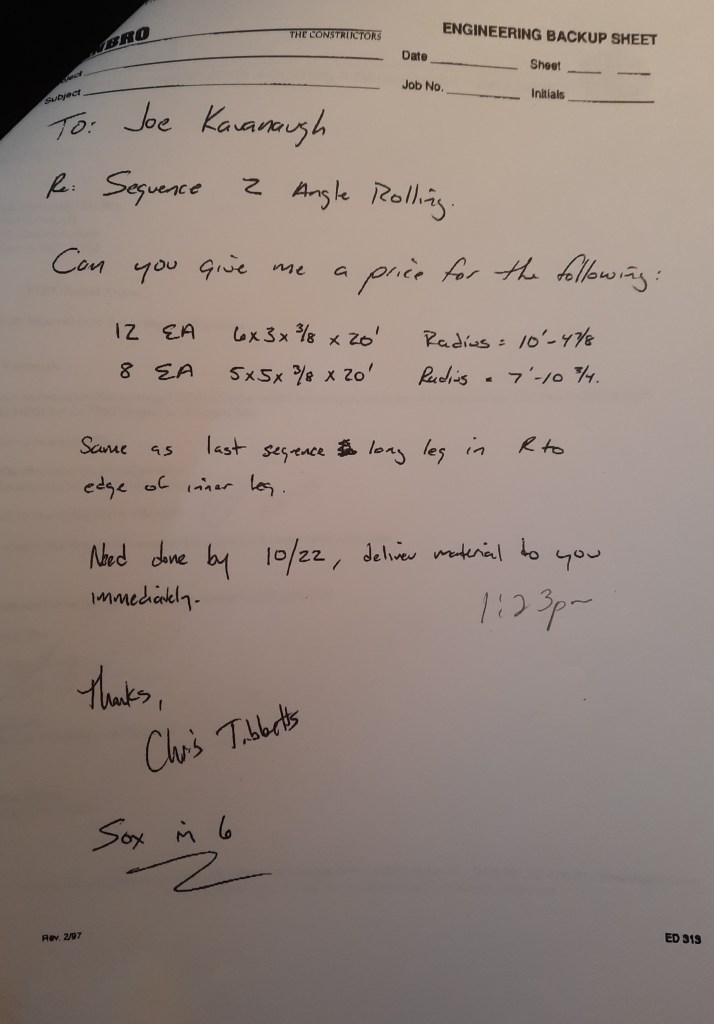 NBRO THE CONSTRUCTORS ENGINEERING BACKUP SHEET
Date Sheet
Subject Job No. Initials
To: Joe Kavanaugh
Re: Sequence 2 Angle Rolling.
Can you give me a price for the following:
12 EA 6x3x 3/8 x 20' Radius = 10'-4 7/8
8 EA 5x5x 3/8 x 20' Radius = 7'-10 3/4.
Same as last seqence long leg in R to
edge of inner leg.
Need done by 10/22, deliver material to you
immediately.
1:23pm
Thanks,
Chris Tibbetts
Sox in 6
Rev. 2/97 ED 313